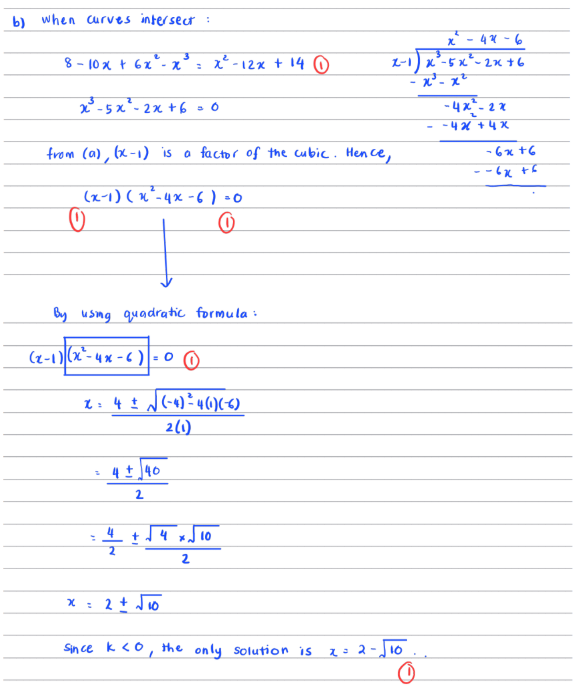 b) when curves intersect :
8 - 10x + 6x² - x³ = x² - 12x + 14 ①
x³ - 5x² - 2x + 6 = 0
x² - 4x - 6
x-1 ) x³ - 5x² - 2x + 6
- x³ - x²
-4x² - 2x
- -4x² + 4x
-6x + 6
- -6x + 6
from (a), (x-1) is a factor of the cubic. Hence,
(x-1) ( x² - 4x - 6 ) = 0
① ①
By using quadratic formula :
(x-1) (x² - 4x - 6) = 0 ①
x = 4 ± √(-4)² - 4(1)(-6)
2(1)
= 4 ± √40
2
= 4/2 ± √4 × √10
2
x = 2 ± √10
Since k < 0, the only solution is x = 2 - √10 . .
①